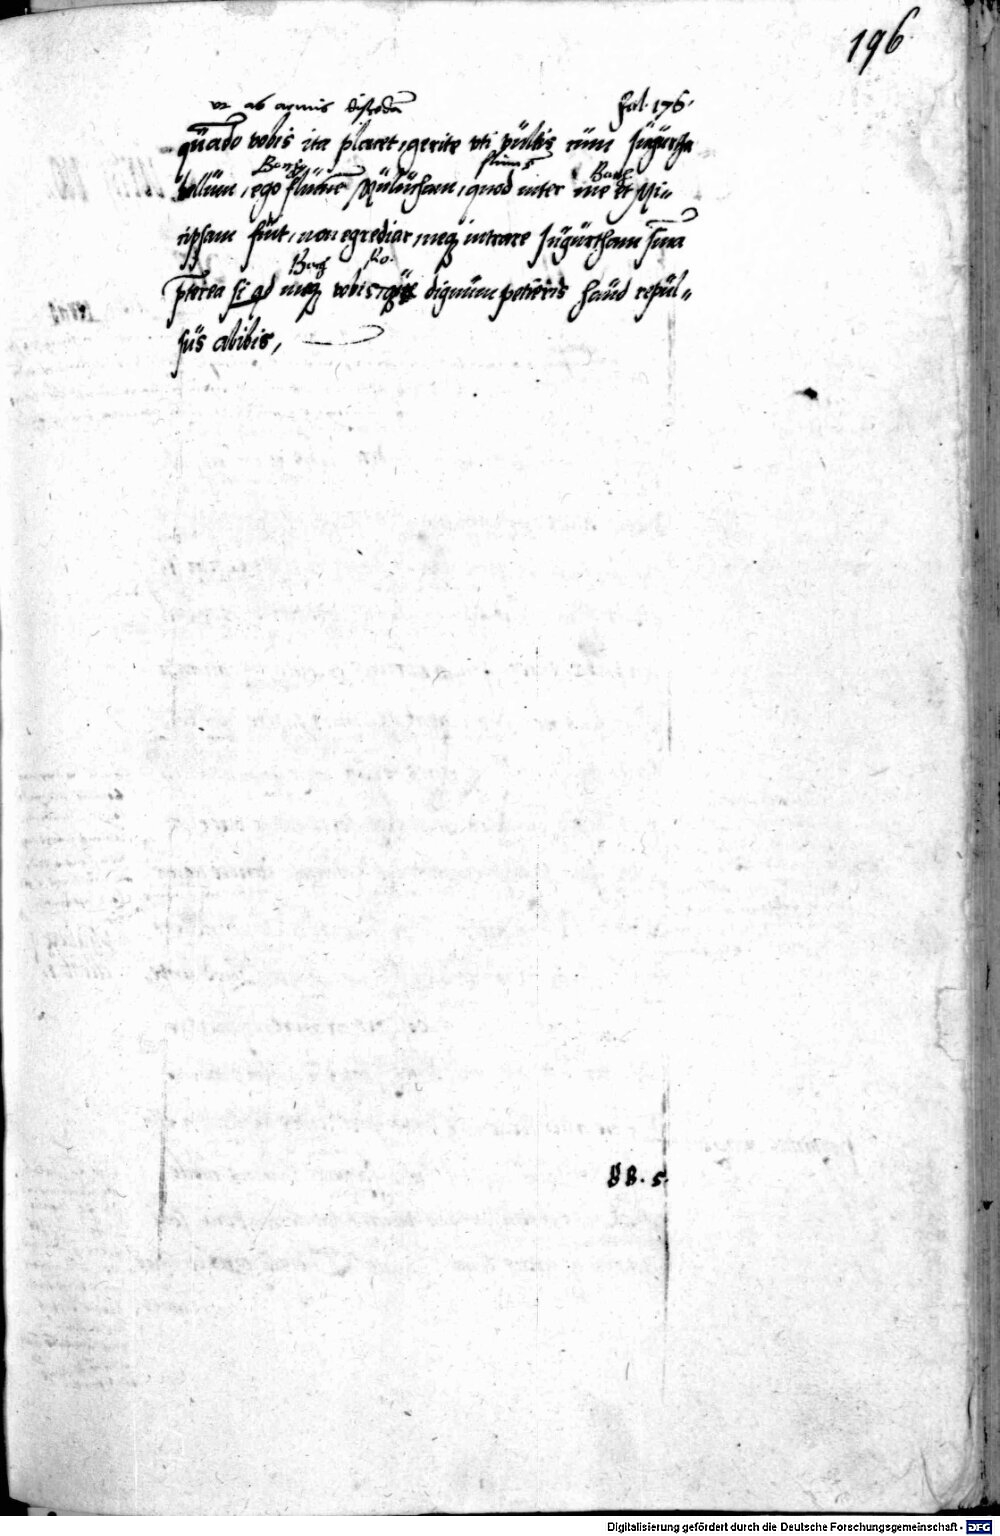 196
ut ab armis discedam Fol. 176.
quãdo vobis ita placet, gerite vti vultis cum Jugurtha
Bocch9 flumẽ Bocch
bellum, ego flumẽ Muluchã, quod inter me et Mi-
cipsam fuit, non egrediar, neq intrare Jugurtham sinã
Boch Ro.
pterea si qd meq vobisq dignum petiveris haud repul-
sus abibis,
88. 5.
Digitalisierung gefördert durch die Deutsche Forschungsgemeinschaft - DFG